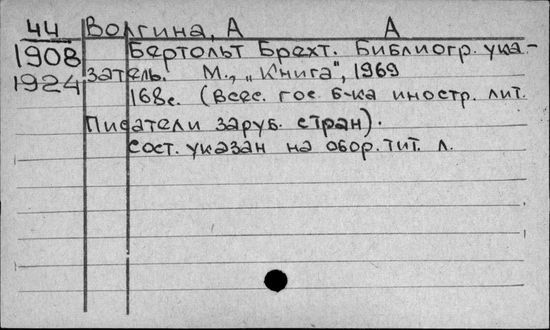 44 Волгина, А А
1908 Бертольт Брехт. Библиогр. ука-
1924 затель. М., „Книга", 1969
168с. (Всес. гос. б-ка иностр. лит.
Писатели заруб. стран).
Сост. указан на обор. тит. л.